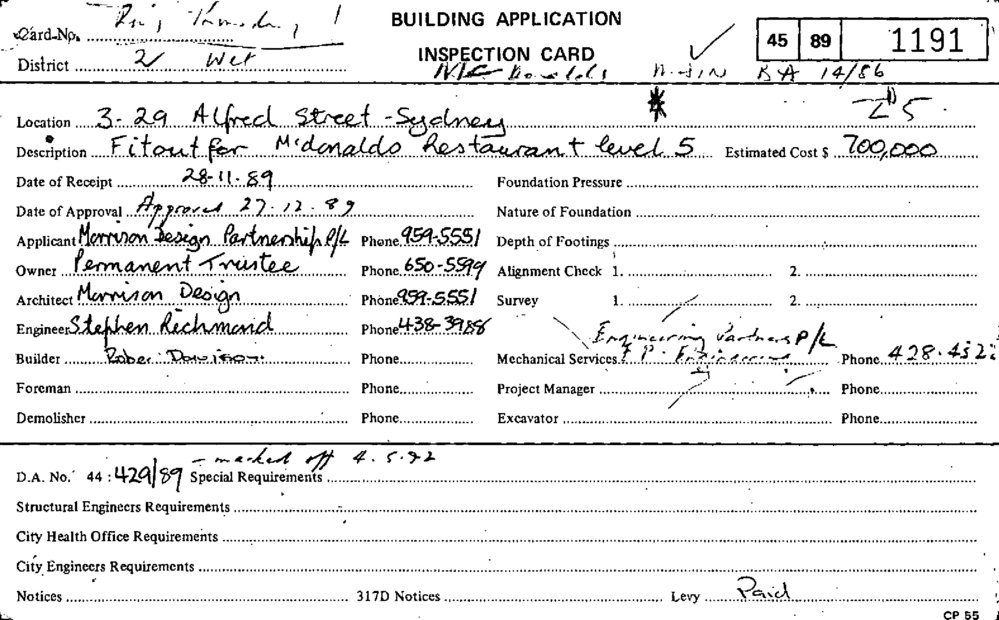 BUILDING APPLICATION
INSPECTION CARD
Card No. 1
District 2 West
45 89 1191
BA 14/86
Location 3-29 Alfred Street - Sydney
Description Fitout for McDonalds Restaurant level 5 Estimated Cost $ 700,000
Date of Receipt 28-11-89 Foundation Pressure
Date of Approval Approved 27-12-89 Nature of Foundation
Applicant Morrison Design Partnership P/L Phone 959-5551 Depth of Footings
Owner Permanent Trustee Phone 650-5599 Alignment Check 1. 2.
Architect Morrison Design Phone 959-5551 Survey 1. 2.
Engineer Stephen Richmond Phone 438-3988
Engineering Partners P/L
Builder Phone Mechanical Services E.P. Engineering Phone 428-452
Foreman Phone Project Manager Phone
Demolisher Phone Excavator Phone
- marked off 4.5.92
D.A. No. 44:429/89 Special Requirements
Structural Engineers Requirements
City Health Office Requirements
City Engineers Requirements
Notices 317D Notices Levy Paid
CP 55